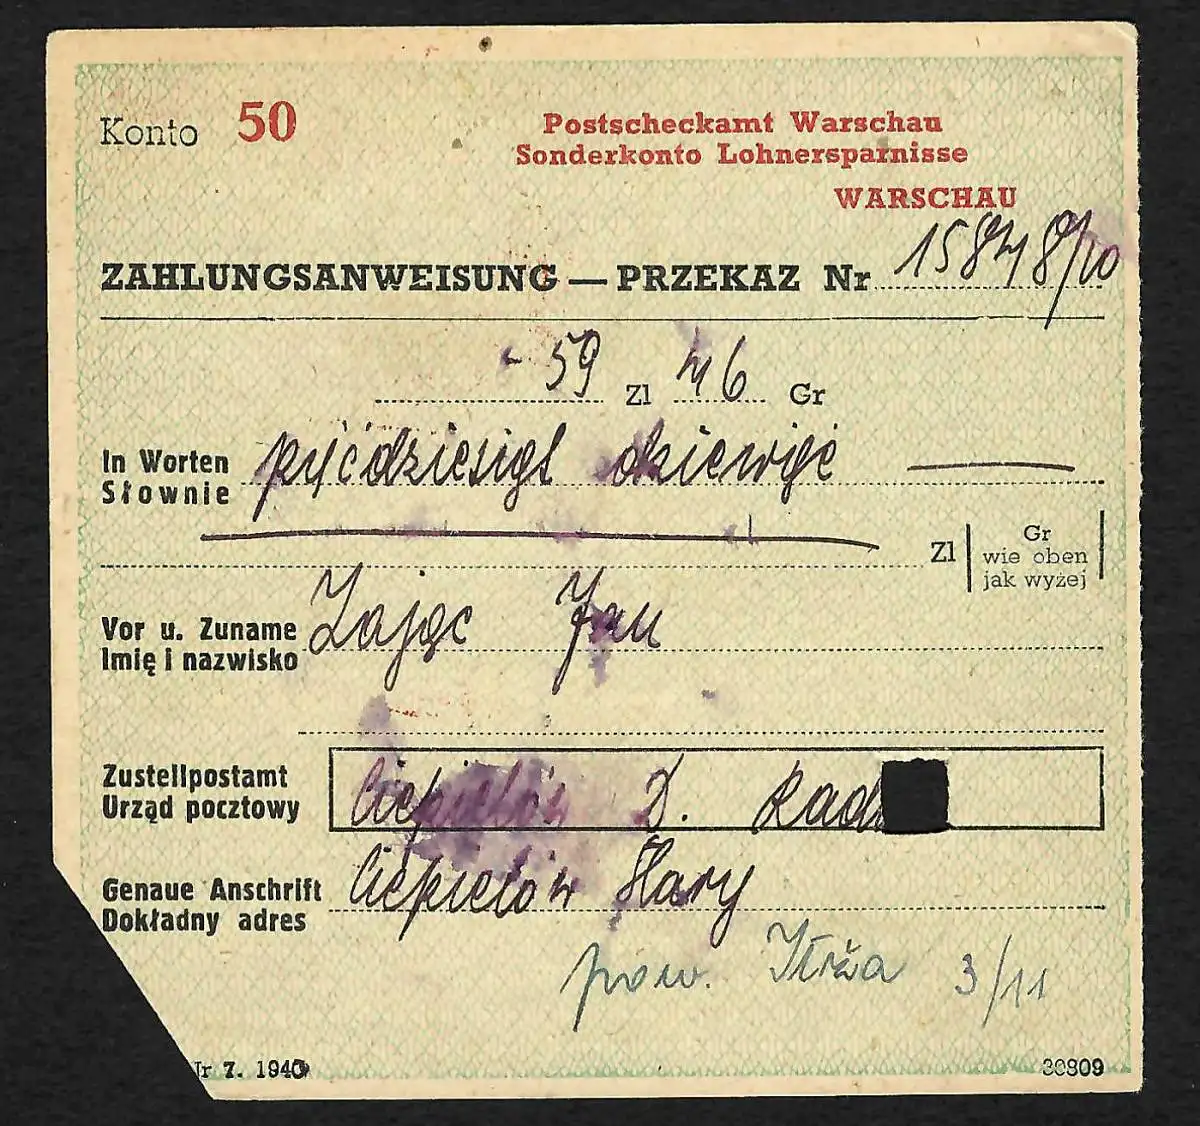 Konto 50
Postscheckamt Warschau
Sonderkonto Lohnersparnisse
WARSCHAU
ZAHLUNGSANWEISUNG — PRZEKAZ Nr 15848/10
- 59 Zl 46 Gr
In Worten
Słownie
pięćdziesiąt dziewięć
Zl
Gr
wie oben
jak wyżej
Vor u. Zuname
Imię i nazwisko
Zając Jan
Zustellpostamt
Urząd pocztowy
Ciepielów D. Rad
Genaue Anschrift
Dokładny adres
Ciepielów Stary
pow. Iłża 3/11
Nr 7. 1940
30809